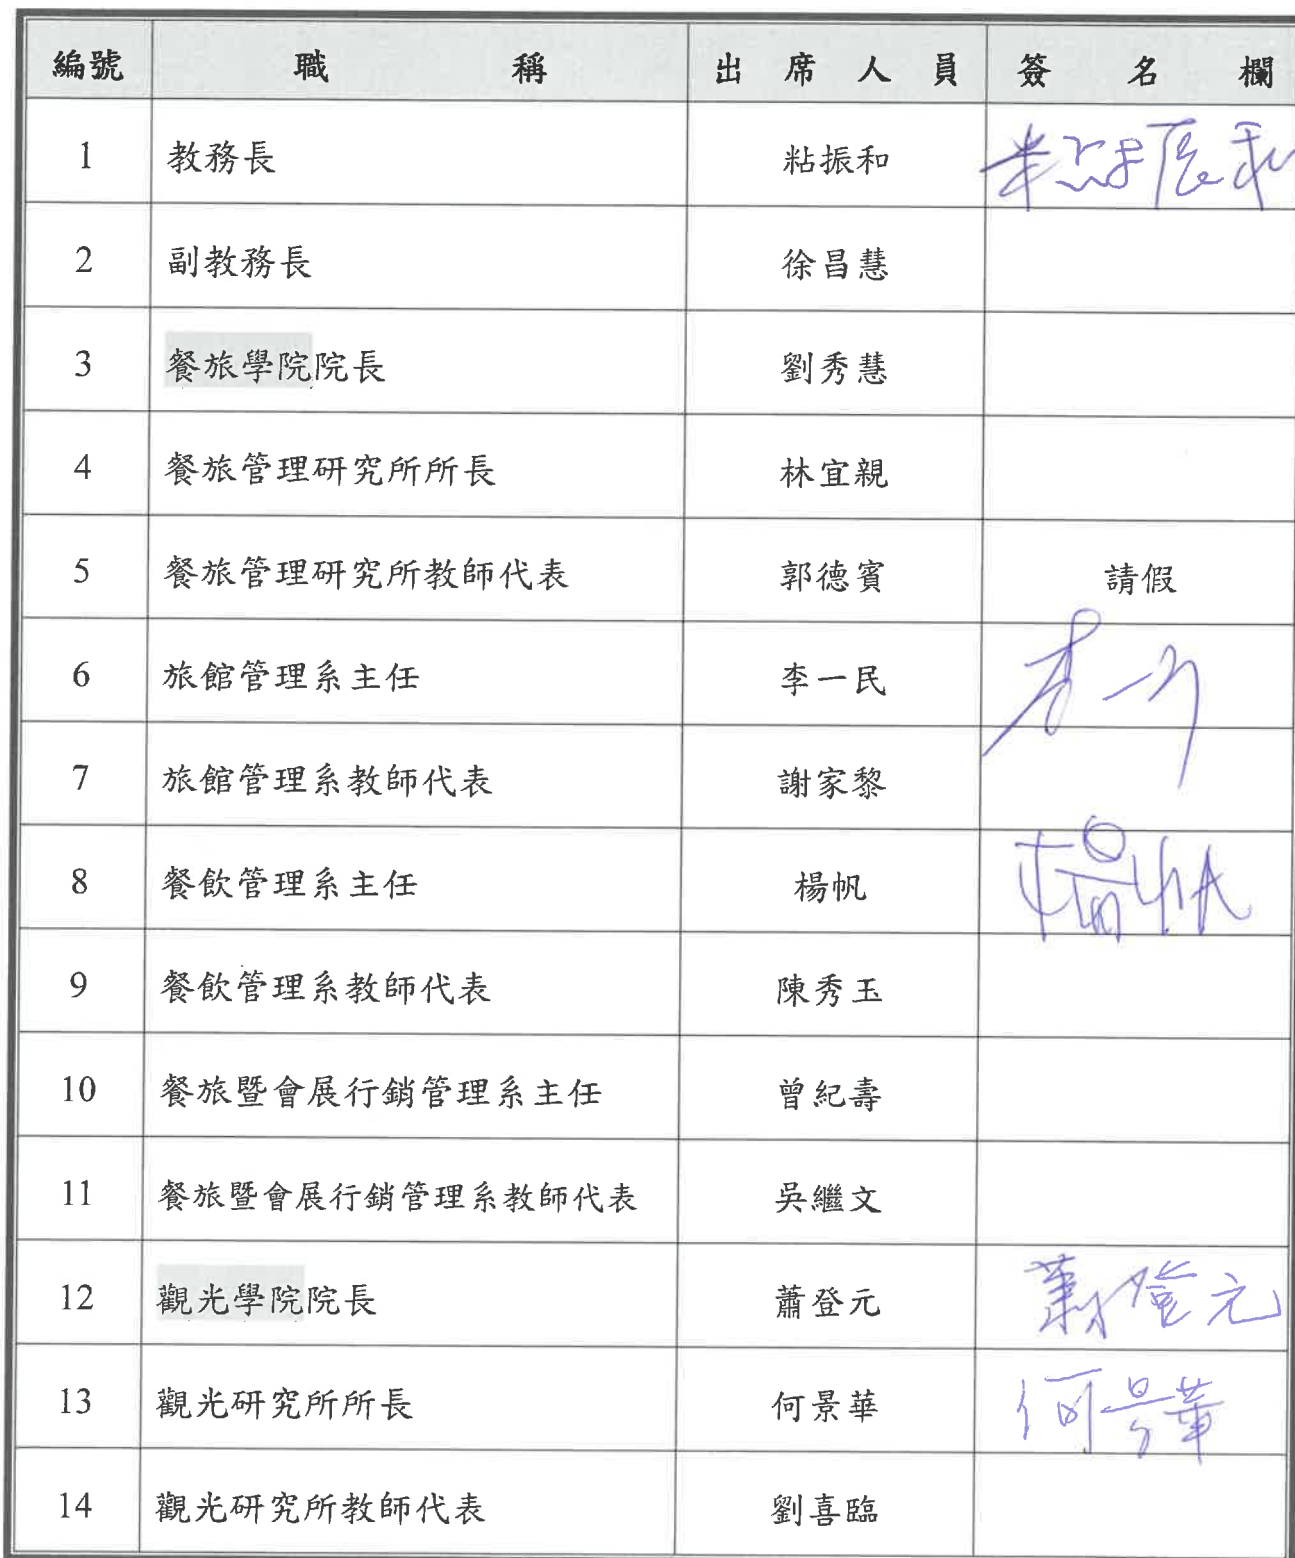 編號 職稱 出席人員 簽名欄
1 教務長 粘振和 粘振和
2 副教務長 徐昌慧
3 餐旅學院院長 劉秀慧
4 餐旅管理研究所所長 林宜親
5 餐旅管理研究所教師代表 郭德賓 請假
6 旅館管理系主任 李一民 李一
7 旅館管理系教師代表 謝家黎
8 餐飲管理系主任 楊帆 楊帆
9 餐飲管理系教師代表 陳秀玉
10 餐旅暨會展行銷管理系主任 曾紀壽
11 餐旅暨會展行銷管理系教師代表 吳繼文
12 觀光學院院長 蕭登元 蕭登元
13 觀光研究所所長 何景華 何景華
14 觀光研究所教師代表 劉喜臨